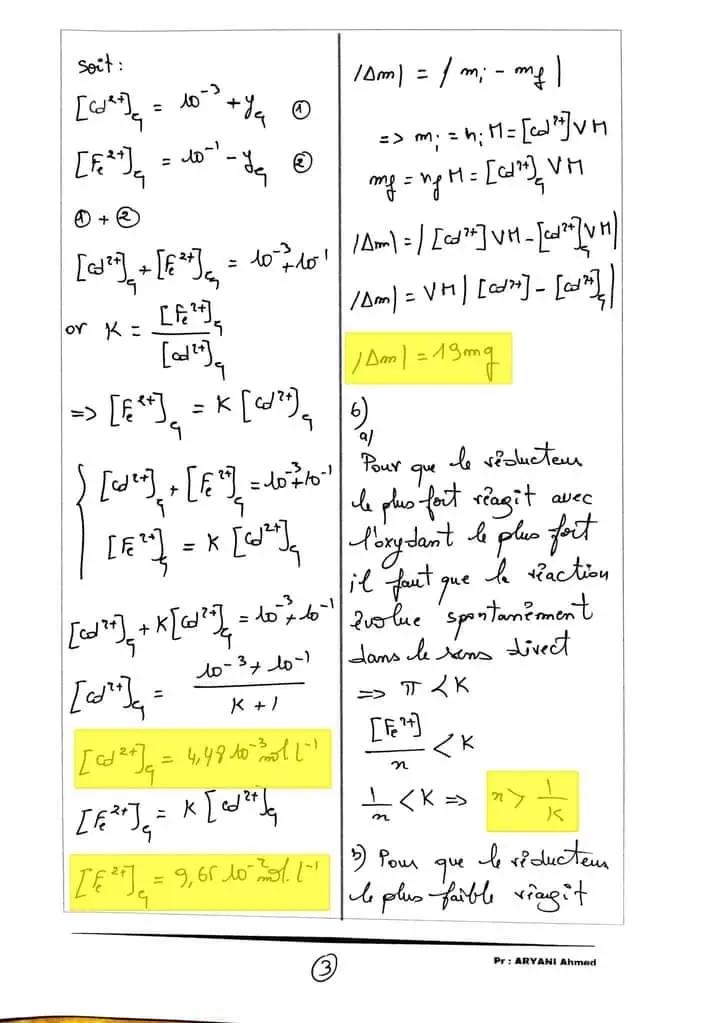 Soit :
[Cd²⁺]éq = 10⁻³ + yéq ①
[Fe²⁺]éq = 10⁻¹ - yéq ②
① + ②
[Cd²⁺]éq + [Fe²⁺]éq = 10⁻³ + 10⁻¹
or K = [Fe²⁺]éq / [Cd²⁺]éq
=> [Fe²⁺]éq = K [Cd²⁺]éq
{ [Cd²⁺]éq + [Fe²⁺]éq = 10⁻³ + 10⁻¹
[Fe²⁺]éq = K [Cd²⁺]éq
[Cd²⁺]éq + K[Cd²⁺]éq = 10⁻³ + 10⁻¹
[Cd²⁺]éq = (10⁻³ + 10⁻¹) / (K + 1)
[Cd²⁺]éq = 4,48 10⁻³ mol.l⁻¹
[Fe²⁺]éq = K [Cd²⁺]éq
[Fe²⁺]éq = 9,65 10⁻² mol.l⁻¹
|Δm| = | mi - mf |
=> mi = ni M = [Cd²⁺] V M
mf = nf M = [Cd²⁺]éq V M
|Δm| = | [Cd²⁺] V M - [Cd²⁺]éq V M |
|Δm| = V M | [Cd²⁺] - [Cd²⁺]éq |
|Δm| = 19 mg
6)
a/
Pour que le réducteur
le plus fort réagit avec
l'oxydant le plus fort
il faut que la réaction
évolue spontanément
dans le sens direct
=> π < K
[Fe²⁺] / n < K
1/n < K => n > 1/K
b) Pour que le réducteur
le plus faible réagit
③
Pr : ARYANI Ahmed